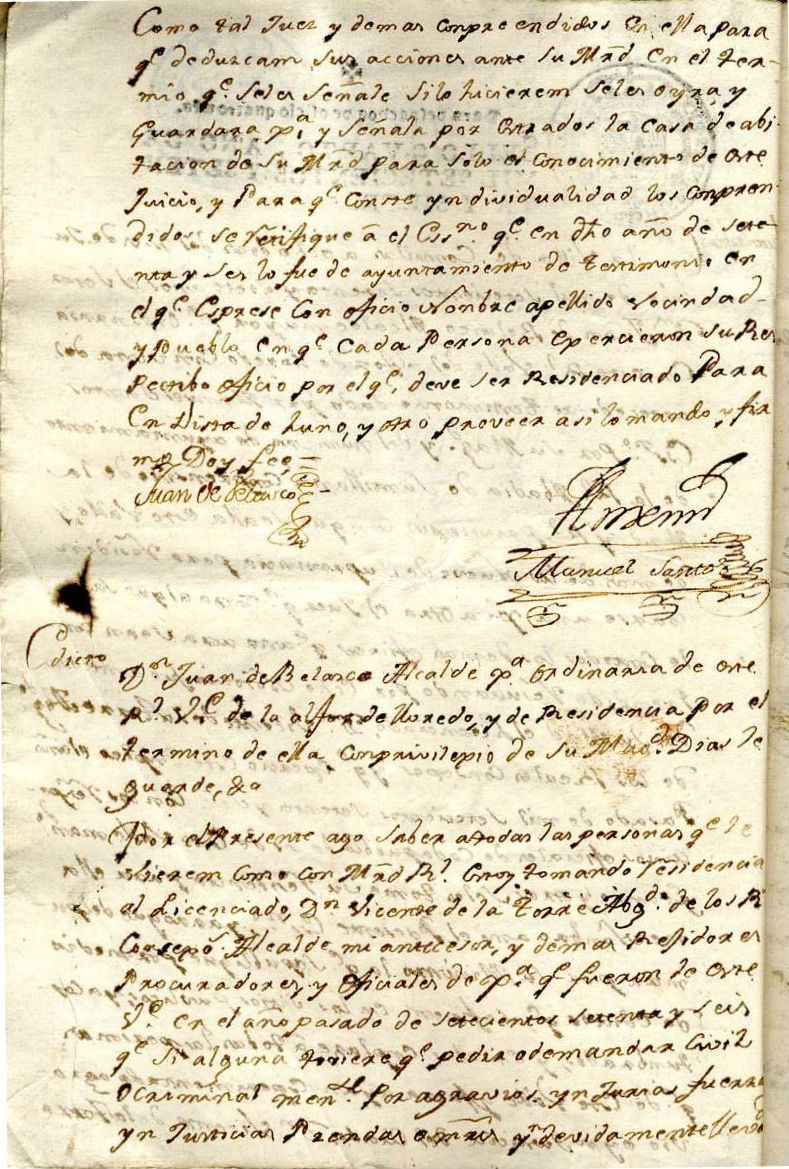 Como tal Juez y demas Conpreendidos En ella para
qe deduzcam sus acciones ante su Mrd En el ter-
mio qe seles señale silo hicierem seles oyra, y
Guardara pa y Señala por estrados la Casa de abi-
tacion de su Mrd para solo el Conocimiento de este
Juicio, y Para qe Conste yndividualidad los Conpren-
didos se Retifique â el Essno qe en dho año de sete-
nta y seis lo fue de ayuntamiento de testimonio en
el qe Esprese Con oficio Nonbre apellido Vecindad
y Pueblo En qe Cada Persona Expercieron su Res
Pectibo oficio por el qe, deve ser Residenciado Para
En Vista de huno, y otro proveer asi lo mando, y fir
mo Doy fee =
Juan de Velasco
Antemi
Manuel Santos
Edicto
Dn Juan de Belasco Alcalde pa Ordinaria de este
Rl Ve de la alfoz de lloredo, y de Residencia Por el
termino de ella Conprivilepio de su Magd Dias le
guarde, &a
Por el Presente ago saber atodas las personas qe le
vierem Como Con Mrd Rl Estoy tomando Residencia
al Licenciado, Dn Vicente de la Torre Abgdo de los R
Consepos Alcalde mi antecesor, y demas Rejidores
Procuradores, y Oficiales de pa qe fueron de este
Ve en el año pasado de setecientos setenta y seis
qe si alguna tuviere qe pedir o demandar Civil
O Criminal mente Por agravios, yn Jurias fuerza
yn Justicias Prendas yndevidamente lleva